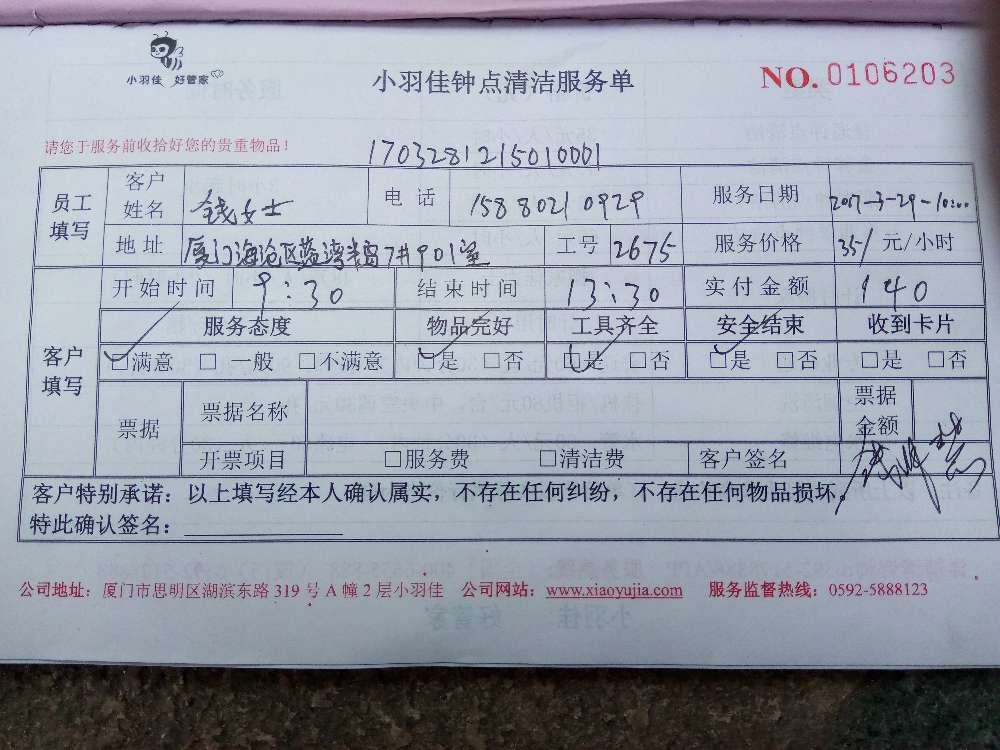 小羽佳 好管家
小羽佳钟点清洁服务单
NO. 0106203
请您于服务前收拾好您的贵重物品！
1703281215010001
员工填写 客户姓名 钱女士 电话 15880210929 服务日期 2017-3-29-10:00
地址 厦门海沧区蓝湾半岛7#901室 工号 2675 服务价格 35/元/小时
客户填写 开始时间 9:30 结束时间 13:30 实付金额 140
服务态度 物品完好 工具齐全 安全结束 收到卡片
☑满意 □一般 □不满意 ☑是 □否 ☑是 □否 ☑是 □否 □是 □否
票据 票据名称 票据金额
开票项目 □服务费 □清洁费 客户签名
客户特别承诺：以上填写经本人确认属实，不存在任何纠纷，不存在任何物品损坏。
特此确认签名：
公司地址：厦门市思明区湖滨东路 319 号 A 幢 2 层小羽佳 公司网站：www.xiaoyujia.com 服务监督热线：0592-5888123